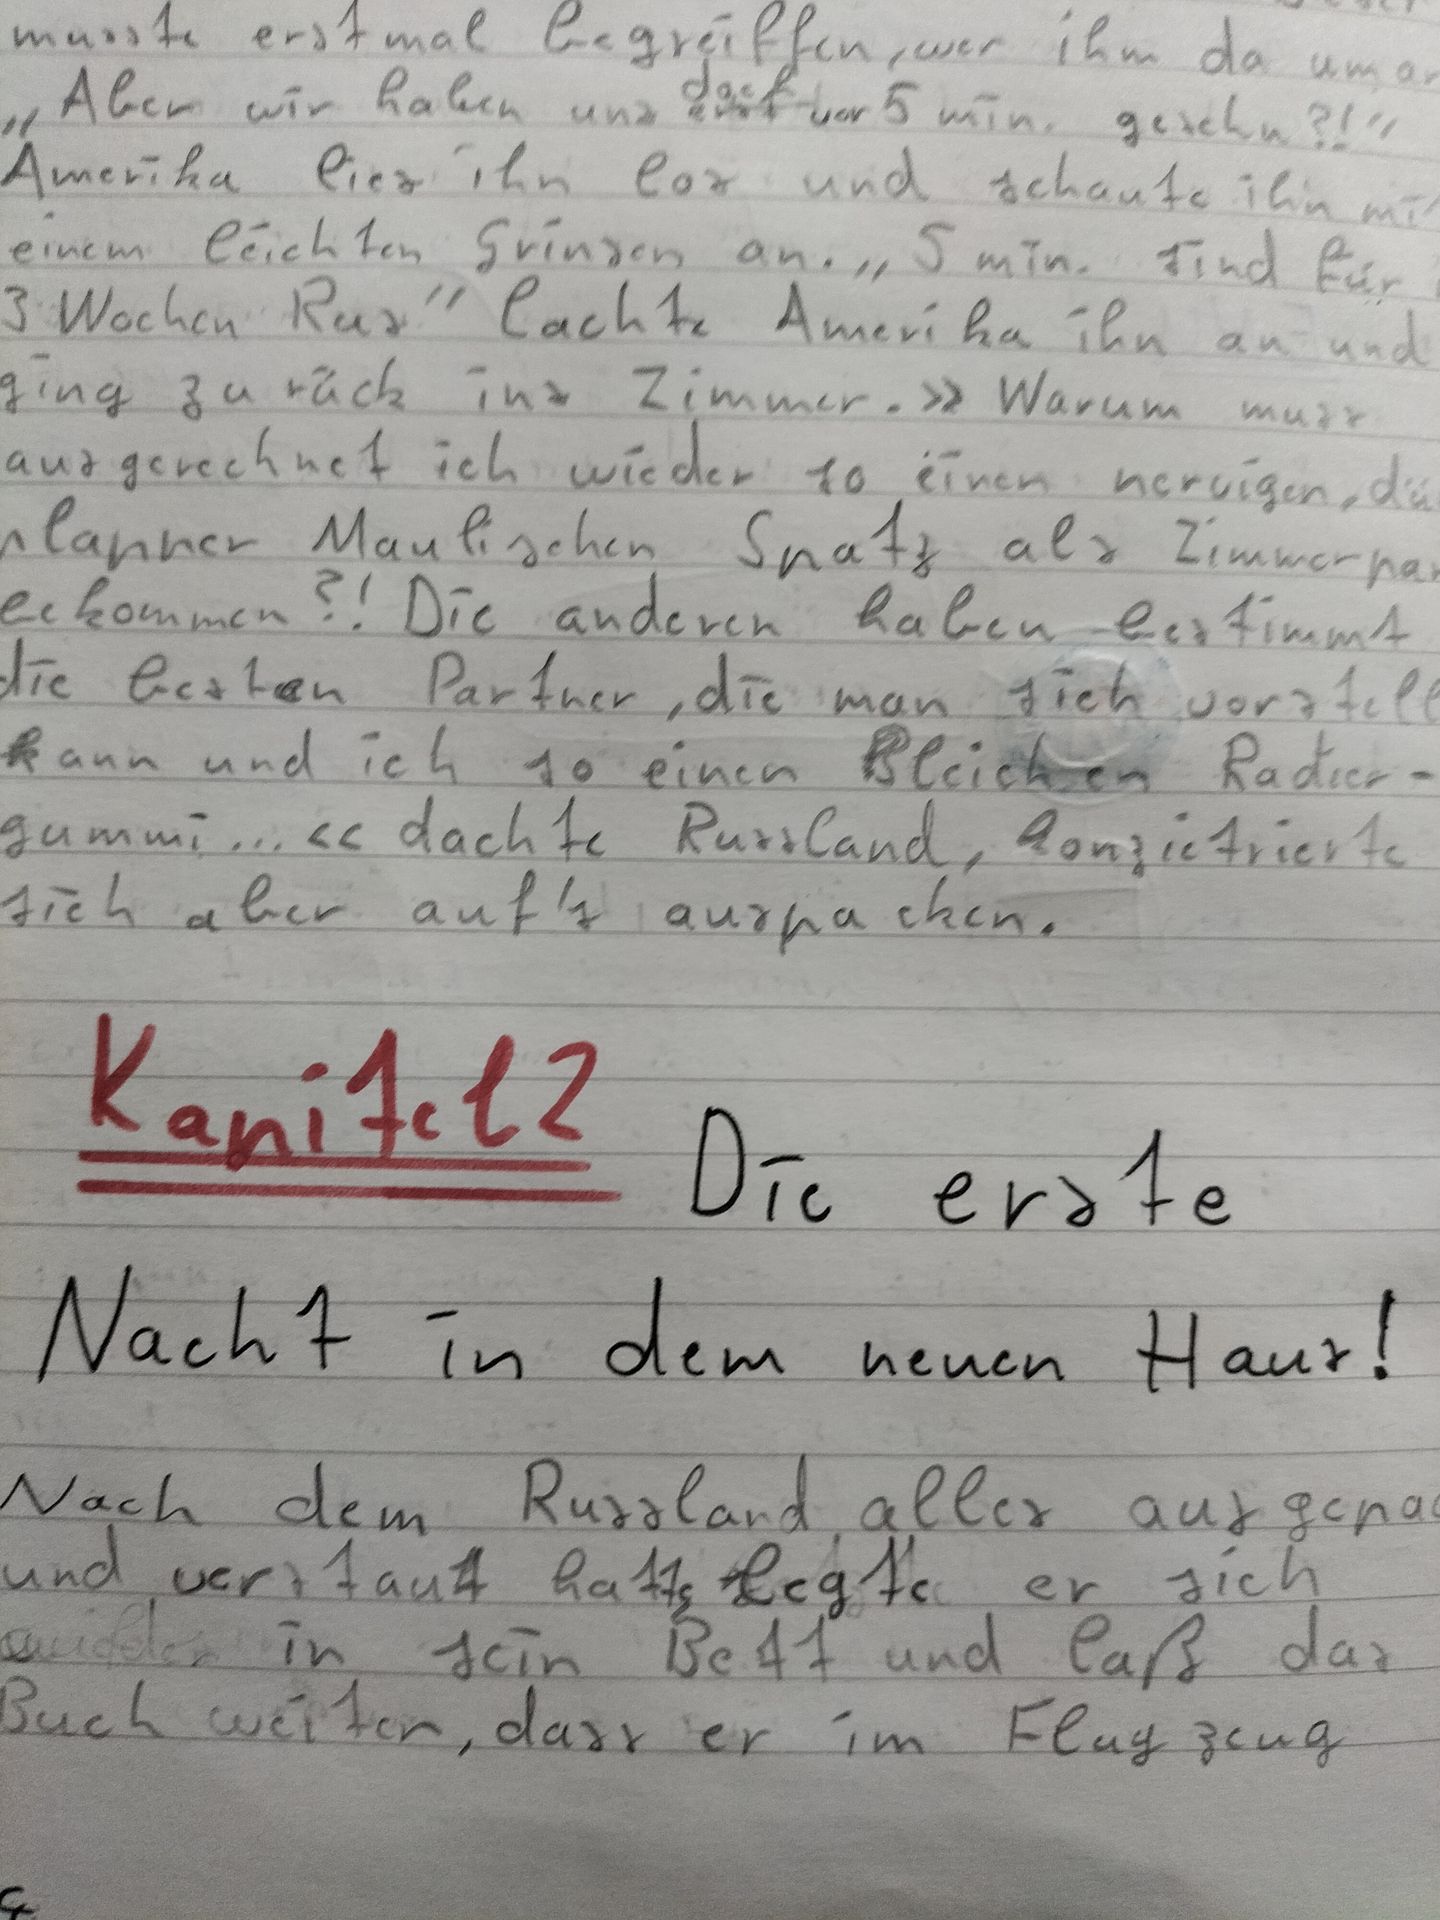 musste erstmal begreiffen, wer ihm da umar
„Aber wir haben uns doch vor 5 min. gesehn?!"
Amerika lies ihn los und schaute ihn mi
einem leichten Grinsen an. „5 min. sind für
3 Wochen Rus" lachte Amerika ihn an und
ging zurück ins Zimmer. >> Warum muss
ausgerechnet ich wieder so einen nervigen, dü
plapper Maulischen Spatz als Zimmerpar
bekommen?! Die anderen haben bestimmt
die besten Partner, die man sich vorstell
kann und ich so einen Bleichen Radier-
gummi... << dachte Russland, konzietrierte
sich aber auf's auspacken.
Kapitel 2 Die erste
Nacht in dem neuen Haus!
Nach dem Russland alles ausgepac
und verstaut hatte, legte er sich
in sein Bett und laß das
Buch weiter, dass er im Flugzeug